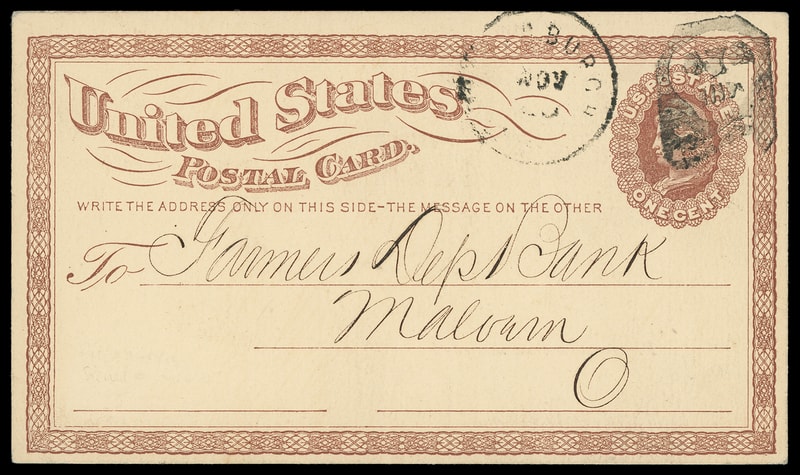 United States
POSTAL CARD.
BURGH
NOV
U.S. POSTAGE
ONE CENT
WRITE THE ADDRESS ONLY ON THIS SIDE–THE MESSAGE ON THE OTHER
To Farmers Dept Bank
Malvurn
O